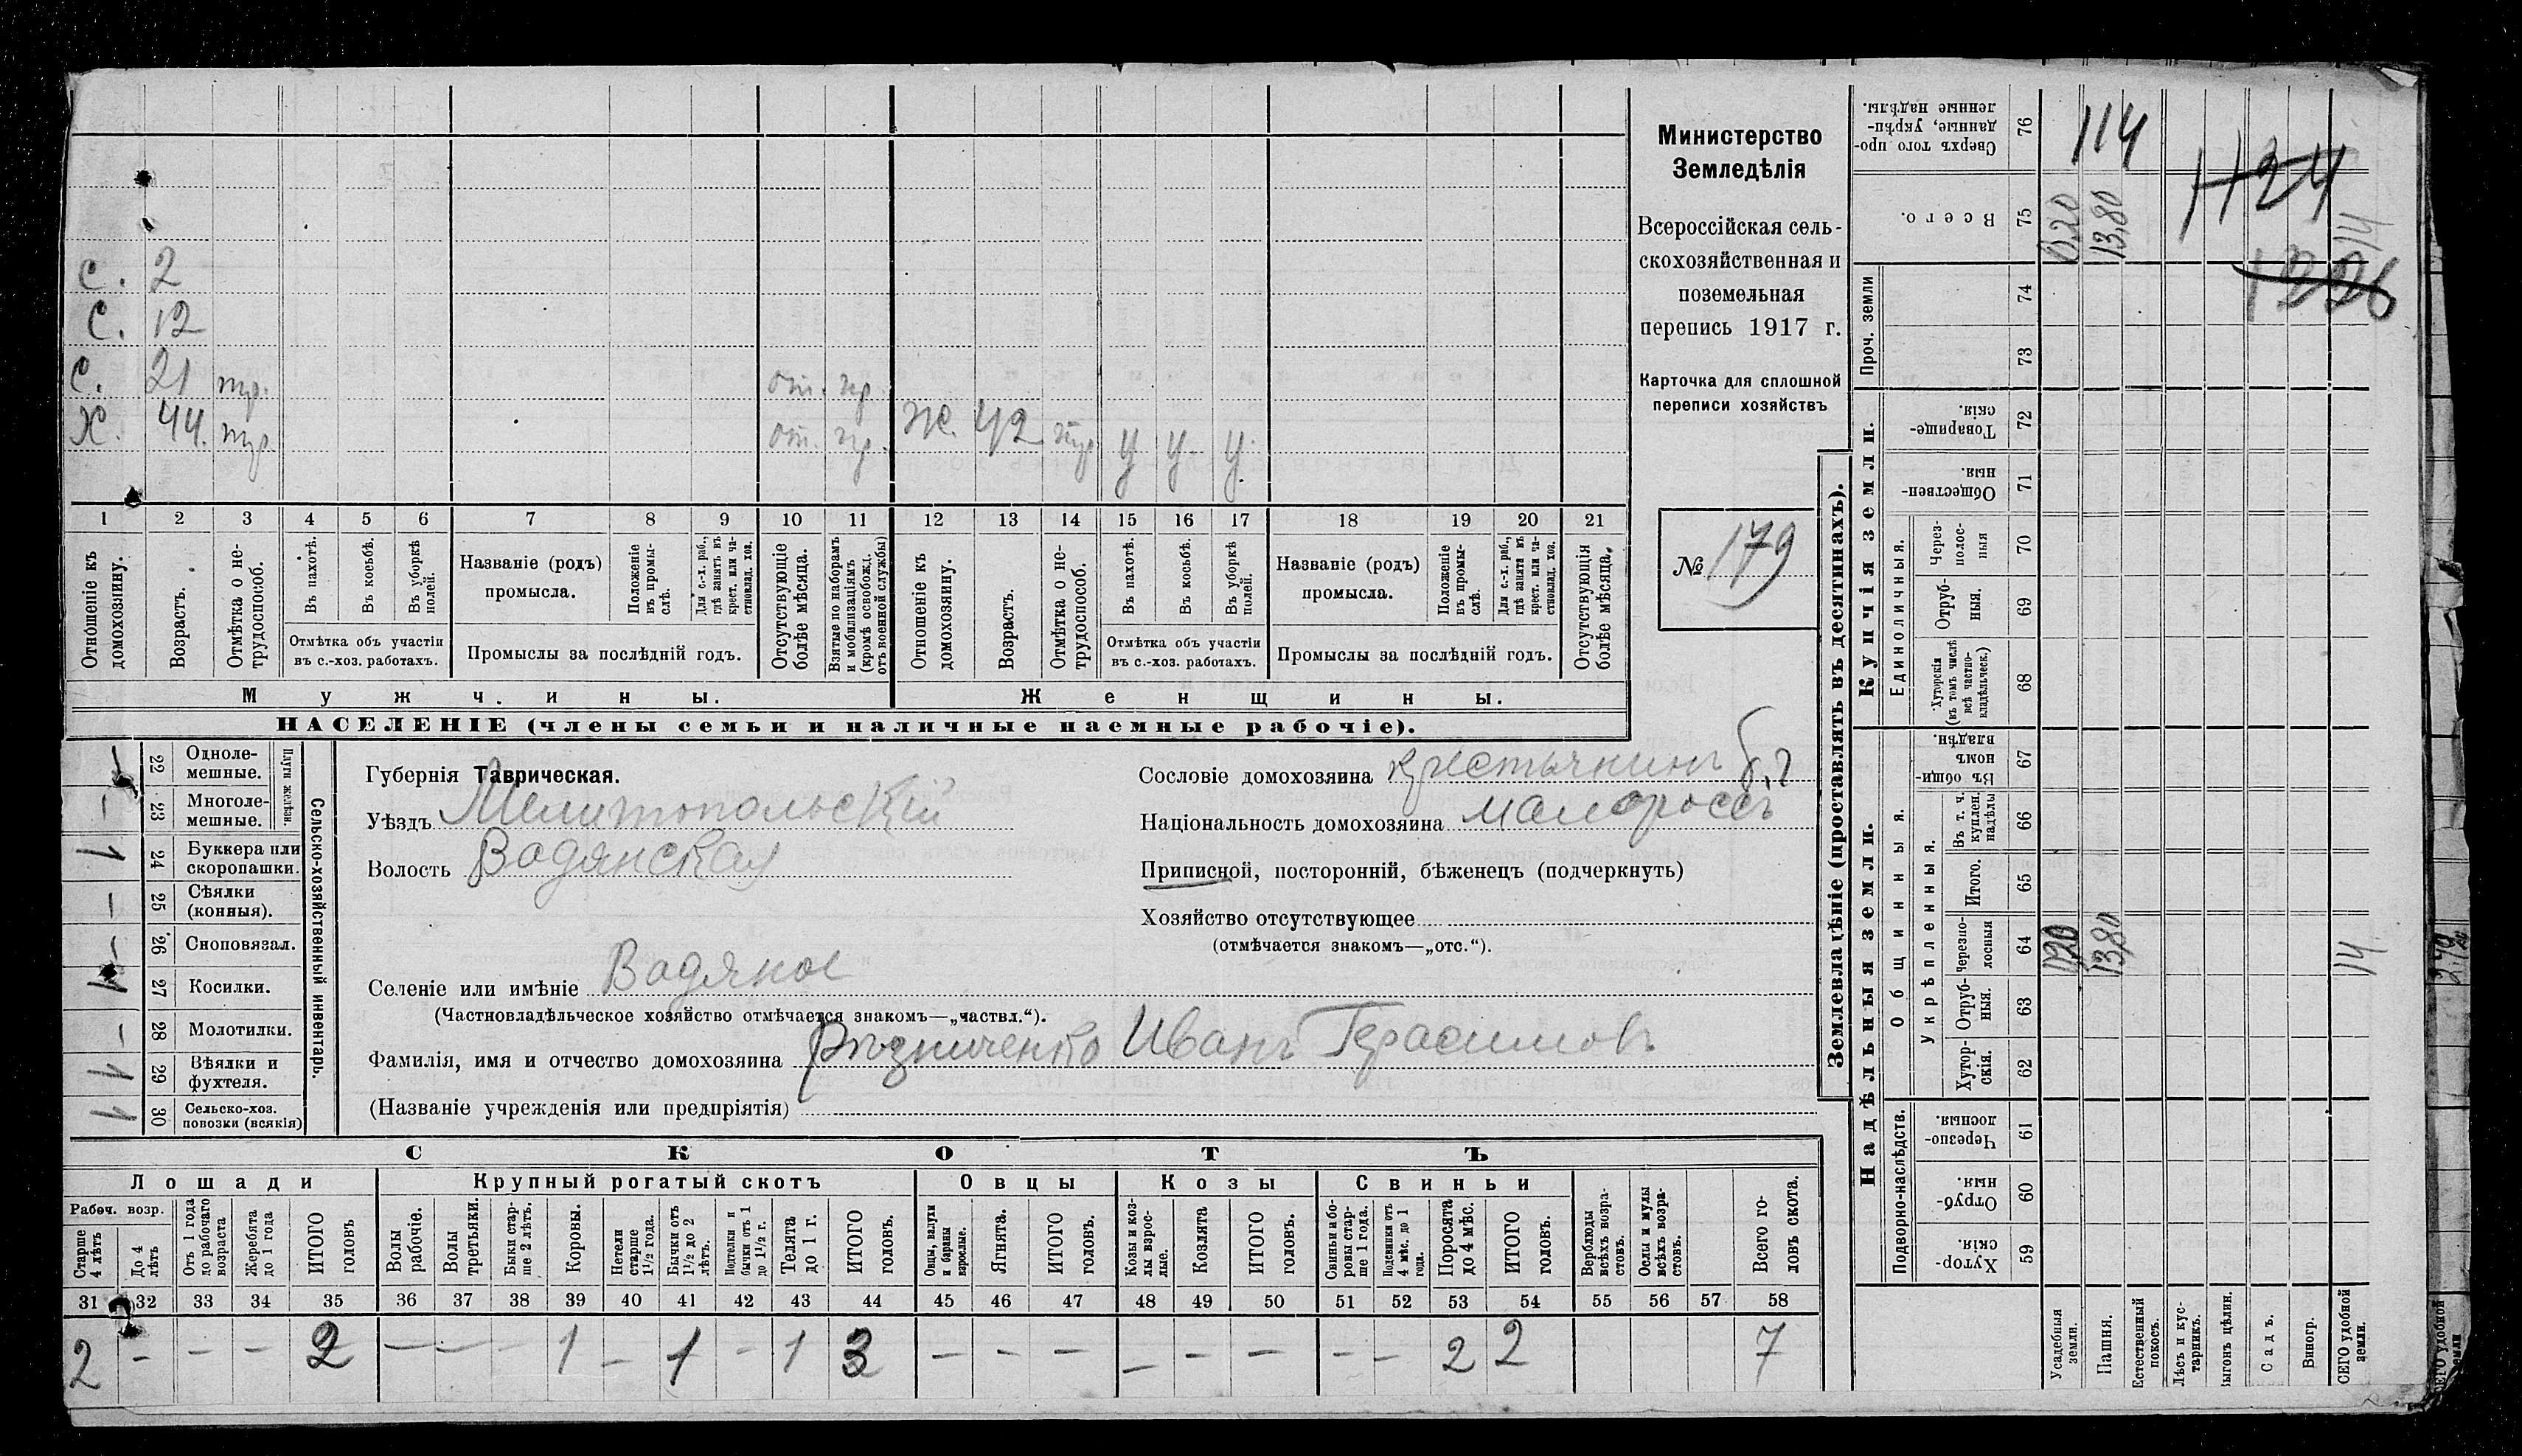 Министерство
Земледѣлія
Всероссійская сель-
скохозяйственная и
поземельная
перепись 1917 г.
Карточка для сплошной
переписи хозяйствъ
№ 179
С. 2
С. 12
С. 21 тр. от. пр.
Х. 44. тр. от. пр. Ж. 42 тр у у у.
1 2 3 4 5 6 7 8 9 10 11 12 13 14 15 16 17 18 19 20 21
Отношеніе къ домохозяину.
Возрастъ.
Отмѣтка о не-трудоспособ.
Въ пахотѣ.
Въ косьбѣ.
Въ уборкѣ полей.
Отмѣтка объ участіи
въ с.-хоз. работахъ.
Названіе (родъ)
промысла.
Положеніе въ промы-слѣ.
Для с.-х. раб., гдѣ занятъ въ крест. или ча-стновлад. хоз.
Промыслы за послѣдній годъ.
Отсутствующіе болѣе мѣсяца.
Взятые по наборамъ и мобилизаціямъ (кромѣ освобожд. отъ военной службы)
Отношеніе къ домохозяину.
Возрастъ.
Отмѣтка о не-трудоспособ.
Въ пахотѣ.
Въ косьбѣ.
Въ уборкѣ полей.
Отмѣтка объ участіи
въ с.-хоз. работахъ.
Названіе (родъ)
промысла.
Положеніе въ промы-слѣ.
Для с.-х. раб., гдѣ занята въ крест. или ча-стновлад. хоз.
Промыслы за послѣдній годъ.
Отсутствующія болѣе мѣсяца.
Мужчины. Женщины.
НАСЕЛЕНІЕ (члены семьи и наличные наемные рабочіе).
Сельско-хозяйственный инвентарь.
Плуги желѣзн.
22 Однолемешные. –
23 Многолемешные. –
24 Буккера или скоропашки. 1
25 Сѣялки (конныя). –
26 Сноповязал. –
27 Косилки. 1
28 Молотилки. –
29 Вѣялки и фухтеля. 1
30 Сельско-хоз. повозки (всякія) 1
Губернія Таврическая.
Уѣздъ Мелитопольскій
Волость Водянская
Селеніе или имѣніе Водяное
(Частновладѣльческое хозяйство отмѣчается знакомъ—„частвл.“).
Фамилія, имя и отчество домохозяина Рѣзниченко Иванъ Герасимовъ
(Названіе учрежденія или предпріятія)
Сословіе домохозяина крестьянинъ
Національность домохозяина малороссъ
Приписной, посторонній, бѣженецъ (подчеркнуть)
Хозяйство отсутствующее
(отмѣчается знакомъ—„отс.“).
СКОТЪ
Лошади Крупный рогатый скотъ Овцы Козы Свиньи
Рабоч. возр.
Старше 4 лѣтъ
До 4 лѣтъ
Отъ 1 года до рабочаго возраста
Жеребята до 1 года
ИТОГО головъ
Волы рабочіе.
Волы третьяки.
Быки стар-ше 2 лѣтъ.
Коровы.
Нетели старше 1½ года.
Бычки отъ 1½ до 2 лѣтъ.
Подтелки и бычки отъ 1 до 1½ г.
Телята до 1 г.
ИТОГО головъ.
Овцы, валухи и бараны взрослые.
Ягнята.
ИТОГО головъ.
Козы и коз-лы взрос-лые.
Козлята
ИТОГО головъ.
Свиньи и бо-ровы стар-ше 1 года.
Подсвинки отъ 4 мѣс. до 1 года.
Поросята до 4 мѣс.
ИТОГО головъ.
Верблюды всѣхъ возра-стовъ.
Ослы и мулы всѣхъ возра-стовъ.
Всего го-ловъ скота.
31 32 33 34 35 36 37 38 39 40 41 42 43 44 45 46 47 48 49 50 51 52 53 54 55 56 57 58
2 – – – 2 – – – 1 – 1 – 1 3 – – – – – – – – 2 2 7
Землевладѣніе (проставлять въ десятинахъ).
Надѣльныя земли. Купчія земли. Проч. земли
Подворно-наслѣдств.
Общинныя.
Укрѣпленныя.
Единоличныя.
59 Хутор-скія.
60 Отруб-ныя.
61 Черезпо-лосныя.
62 Хутор-скія.
63 Отруб-ныя.
64 Черезпо-лосныя 0,20 13,80 14
65 Итого.
66 Въ т. ч. куплен. надѣлы
67 Въ общин-номъ владѣн.
68 Хуторскія (въ томъ числѣ всѣ частно-владѣльческ.)
69 Отруб-ныя.
70 Через-полос-ныя
71 Обществен-ныя.
72 Товарище-скія.
73
74
75 Всего. 0,20 13,80 14
76 Сверхъ того про-данные, укрѣп-ленные надѣлы.
114
1124
1226
Усадебныя земли.
Пашня.
Естественный покосъ.
Лѣсъ и кус-тарникъ.
Выгонъ цѣлин.
Садъ.
Виногр.
ВСЕГО удобной земли.